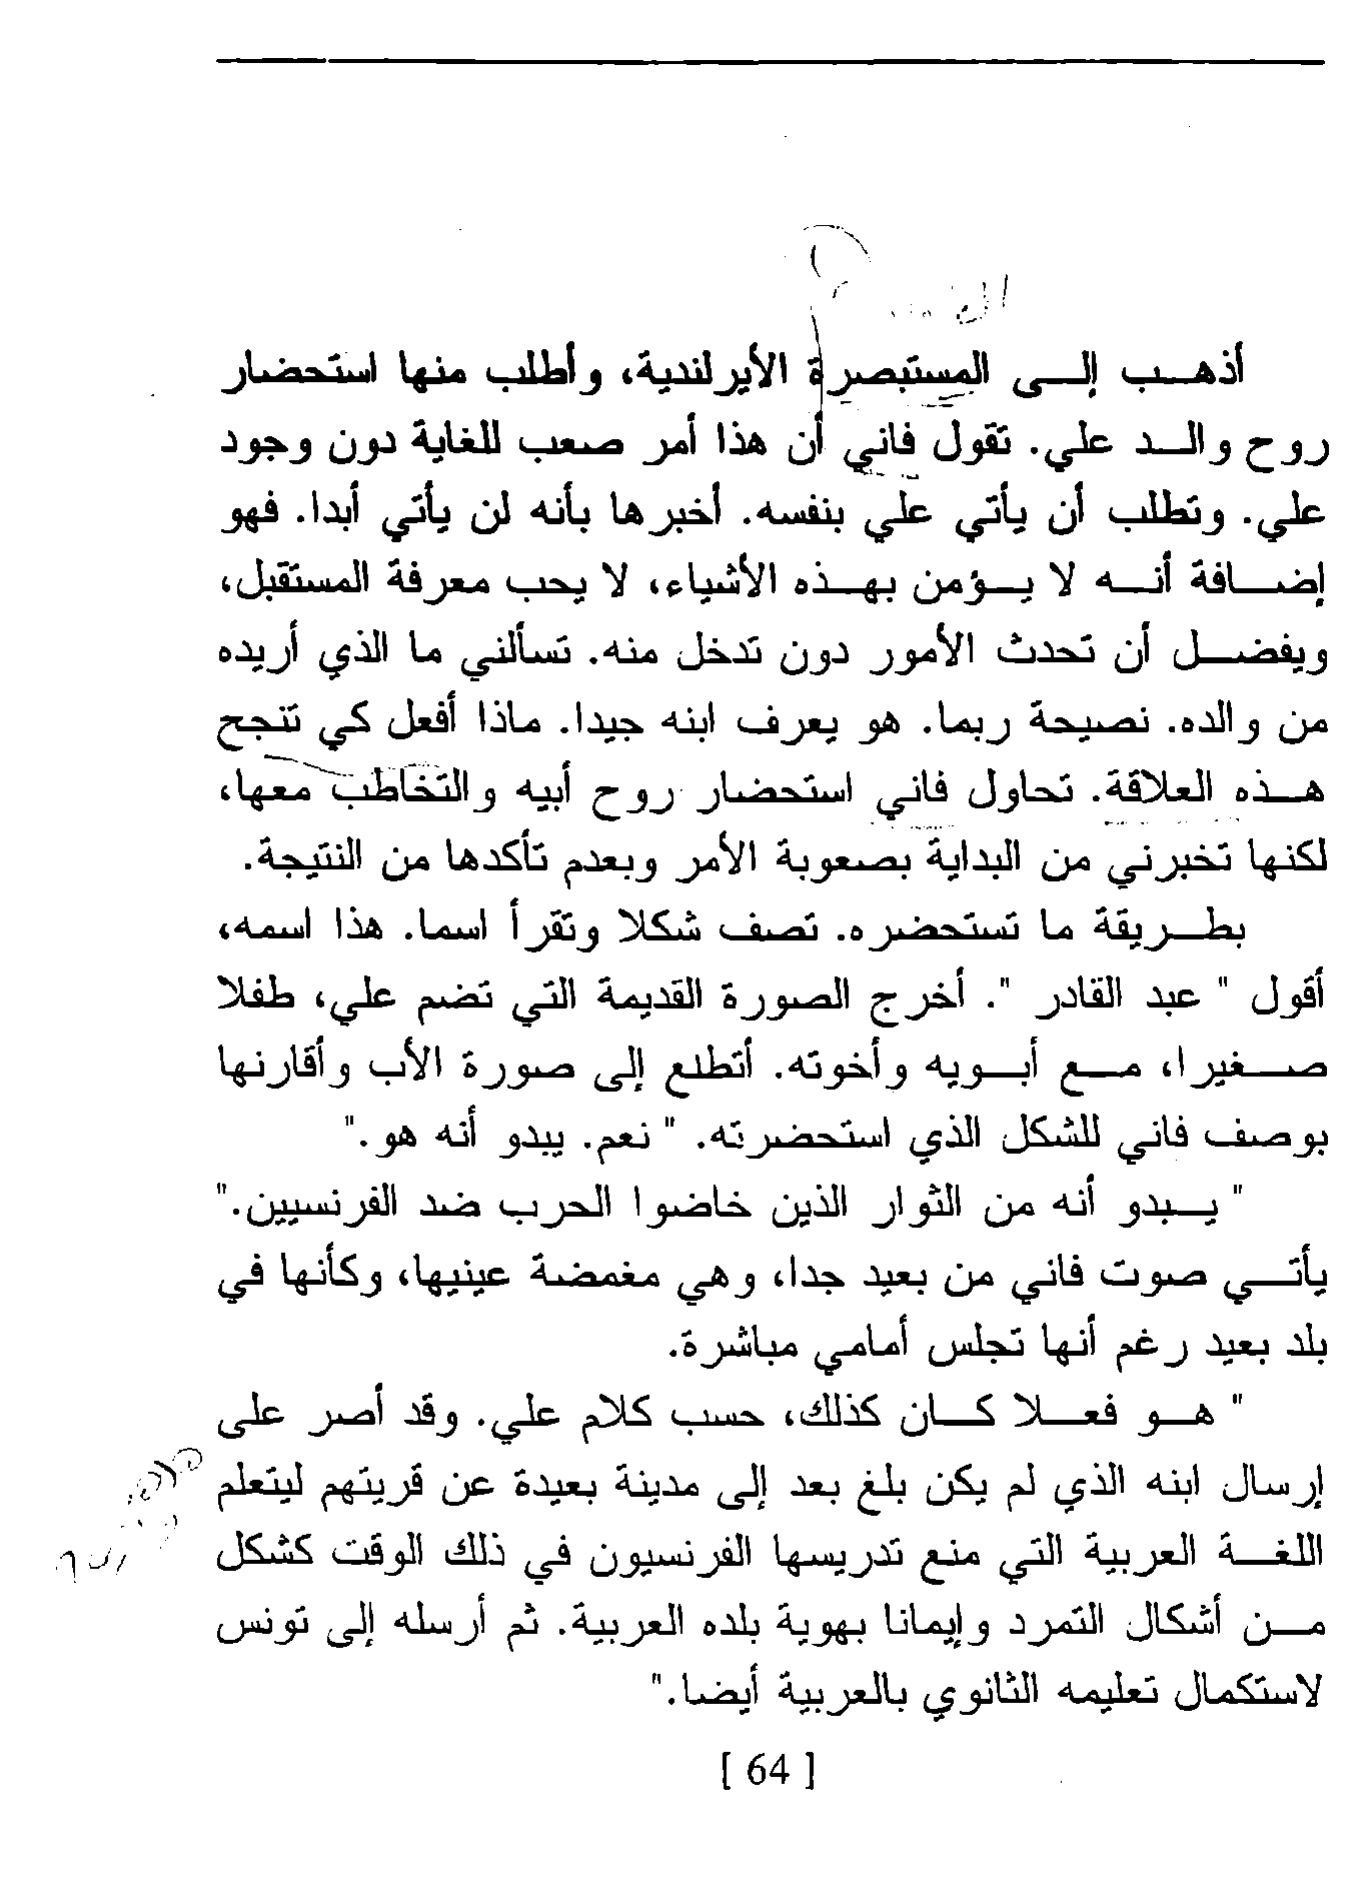 أذهب إلى المستبصرة الأيرلندية، وأطلب منها استحضار
روح والد علي. تقول فاني أن هذا أمر صعب للغاية دون وجود
علي. وتطلب أن يأتي علي بنفسه. أخبرها بأنه لن يأتي أبدا. فهو
إضافة أنه لا يؤمن بهذه الأشياء، لا يحب معرفة المستقبل،
ويفضل أن تحدث الأمور دون تدخل منه. تسألني ما الذي أريده
من والده. نصيحة ربما. هو يعرف ابنه جيدا. ماذا أفعل كي تنجح
هذه العلاقة. تحاول فاني استحضار روح أبيه والتخاطب معها،
لكنها تخبرني من البداية بصعوبة الأمر وبعدم تأكدها من النتيجة.
بطريقة ما تستحضره. تصف شكلا وتقرأ اسما. هذا اسمه،
أقول " عبد القادر ". أخرج الصورة القديمة التي تضم علي، طفلا
صغيرا، مع أبويه وأخوته. أتطلع إلى صورة الأب وأقارنها
بوصف فاني للشكل الذي استحضرته. " نعم. يبدو أنه هو."
" يبدو أنه من الثوار الذين خاضوا الحرب ضد الفرنسيين."
يأتي صوت فاني من بعيد جدا، وهي مغمضة عينيها، وكأنها في
بلد بعيد رغم أنها تجلس أمامي مباشرة.
" هو فعلا كان كذلك، حسب كلام علي. وقد أصر على
إرسال ابنه الذي لم يكن بلغ بعد إلى مدينة بعيدة عن قريتهم ليتعلم
اللغة العربية التي منع تدريسها الفرنسيون في ذلك الوقت كشكل
من أشكال التمرد وإيمانا بهوية بلده العربية. ثم أرسله إلى تونس
لاستكمال تعليمه الثانوي بالعربية أيضا."
[ 64 ]